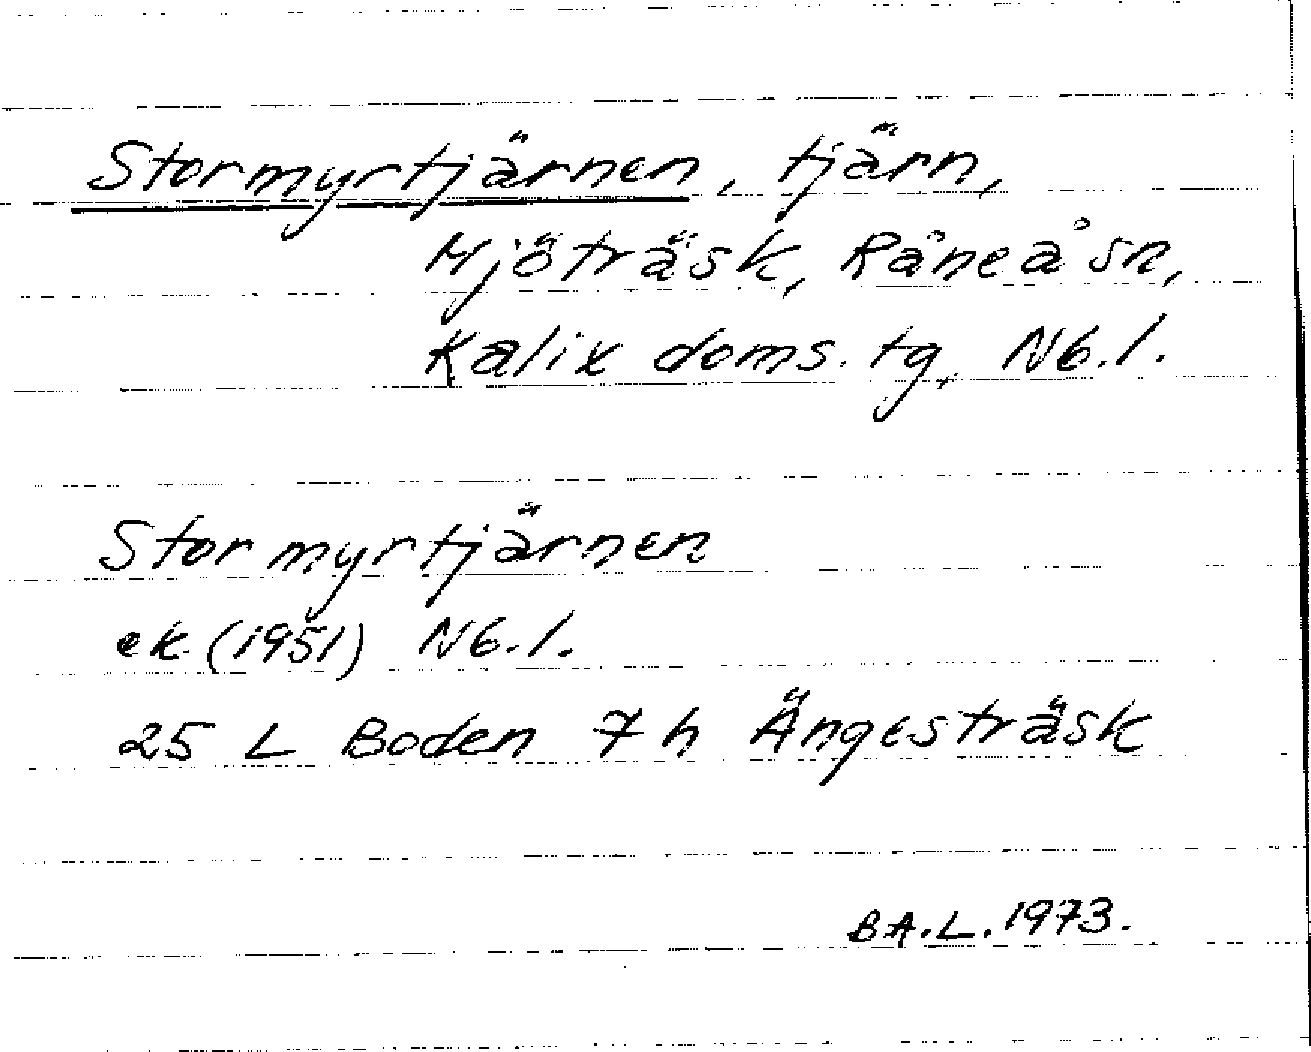 Stormyrtjärnen, tjärn,
Mjöträsk, Råneå sn,
Kalix doms. tg, Nb. l.
Stormyrtjärnen
ek. (1951) Nb. l.
25 L Boden 7 h Ängesträsk
B A. L. 1973.